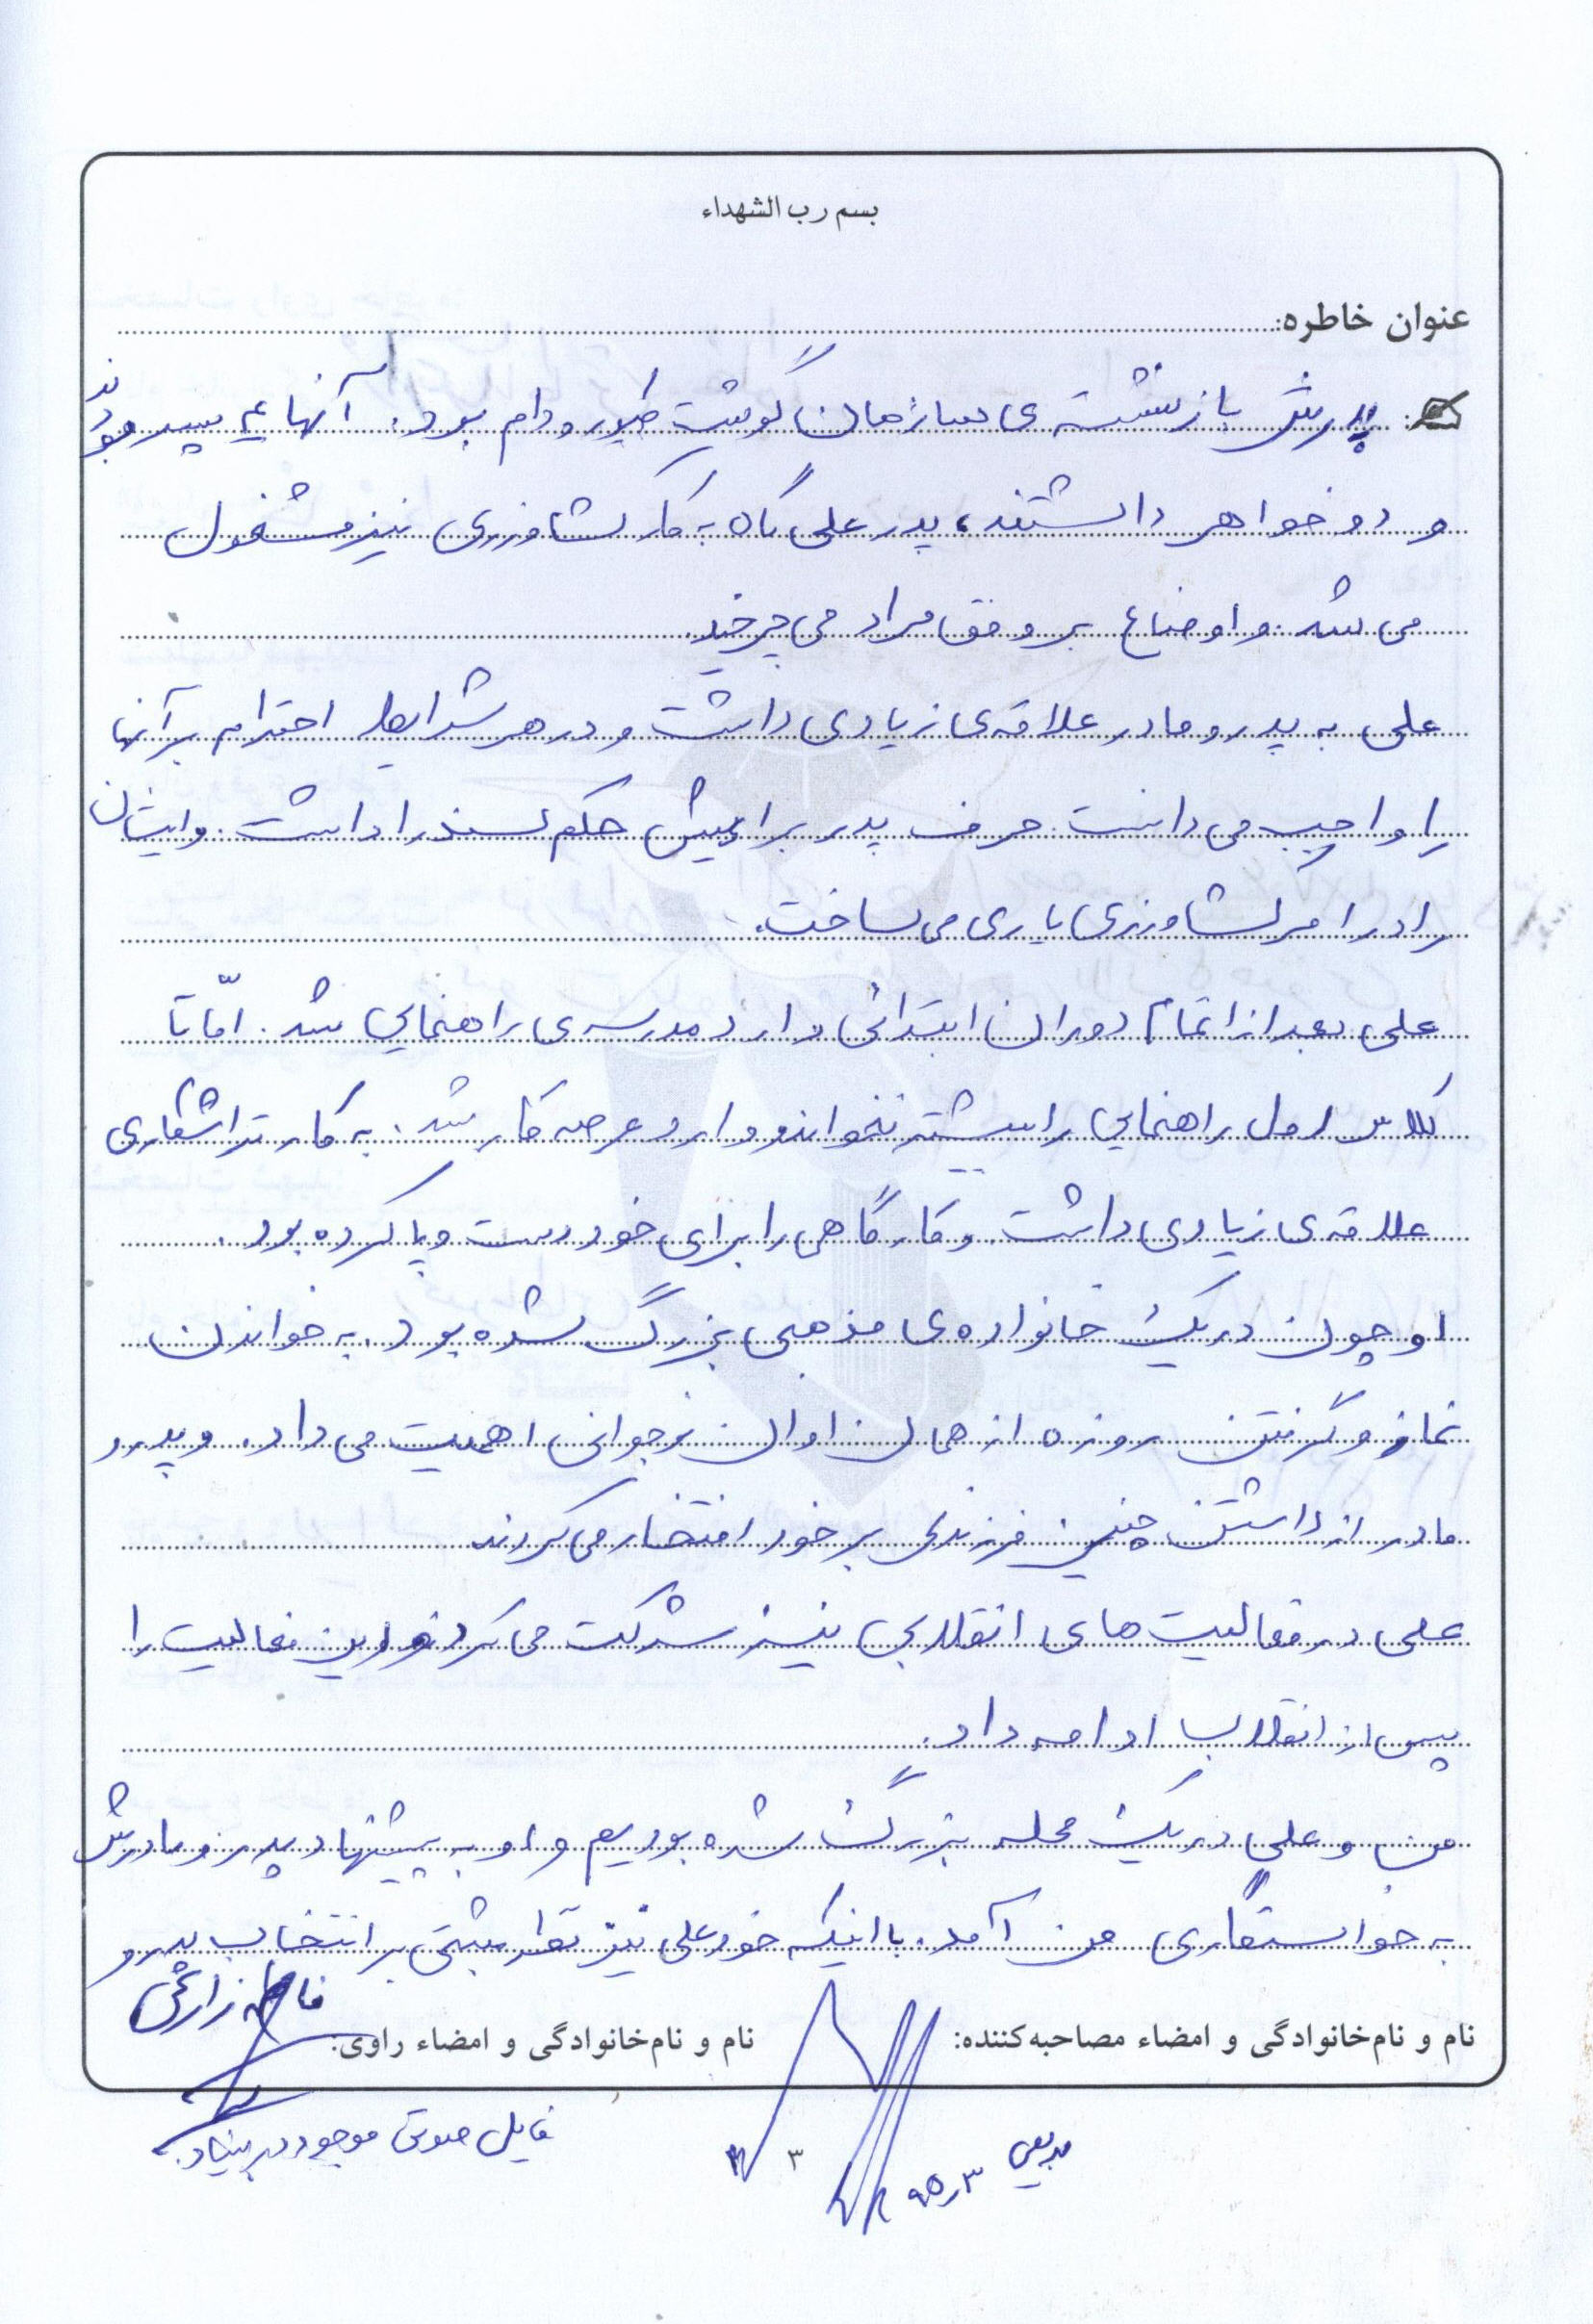 بسم رب الشهداء
عنوان خاطره:
پدرش بازنشسته ی سازمان گوشت طیور و دام بود. آنها ۴ پسر بودند
و دو خواهر داشتند، پدر علی گاه به کار کشاورزی نیز مشغول
می شد. و اوضاع بر وفق مراد می چرخید.
علی به پدر و مادر علاقه ی زیادی داشت و در هر شرایط احترام بر آنها
را واجب می دانست. حرف پدر برایش حکم سند را داشت. و ایشان
را در امر کشاورزی یاری می ساخت.
علی بعد از اتمام دوران ابتدائی وارد مدرسه ی راهنمایی شد. امّا تا
کلاس اول راهنمایی را بیشتر نخواند و وارد عرصه کار شد. به کار تراشکاری
علاقه ی زیادی داشت. و کارگاهی را برای خود دست و پا کرده بود.
او چون در یک خانواده ی مذهبی بزرگ شده بود. به خواندن
نماز و گرفتن روزه از همان اوان نوجوانی اهمیت می داد. و پدر و
مادر از داشتن چنین فرزندی بر خود افتخار می کردند.
علی در فعالیت های انقلابی نیز شرکت می کرد و این فعالیت را
پس از انقلاب ادامه داد.
من و علی در یک محله بزرگ شده بودیم و او به پیشنهاد پدر و مادرش
به خواستگاری من آمد. با اینکه خود علی نیز نظر مثبتی بر انتخاب پدر و
نام و نام‌خانوادگی و امضاء مصاحبه‌کننده:
نام و نام‌خانوادگی و امضاء راوی:
فاطمه زارعی
فایل صوتی موجود در بنیاد.
۳